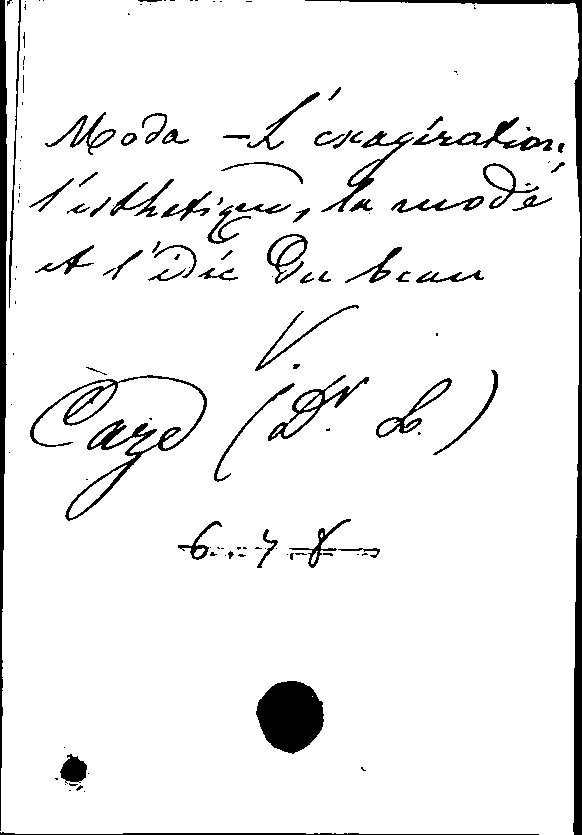 Moda - L'exagération,
l'esthetique, la mode
et l'idée du beau
V.
Caze (Dr. L.)
6..7.8